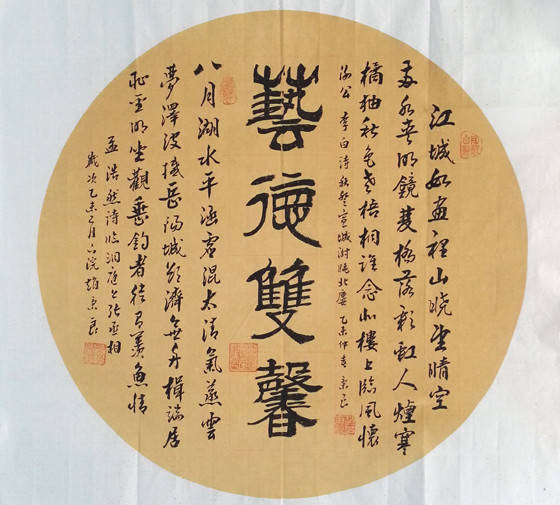 江城如畫裡山晓望晴空
兩水夾明鏡雙橋落彩虹人煙寒
橘柚秋色老梧桐誰念北樓上臨風懷
謝公 李白詩秋登宣城謝朓北樓 乙未仲春 景良
藝德雙馨
八月湖水平涵虛混太清氣蒸雲
夢澤波撼岳陽城欲濟無舟楫端居
恥聖明坐觀垂釣者徒有羨魚情
孟浩然詩臨洞庭上張丞相
歲次乙未二月 趙景良